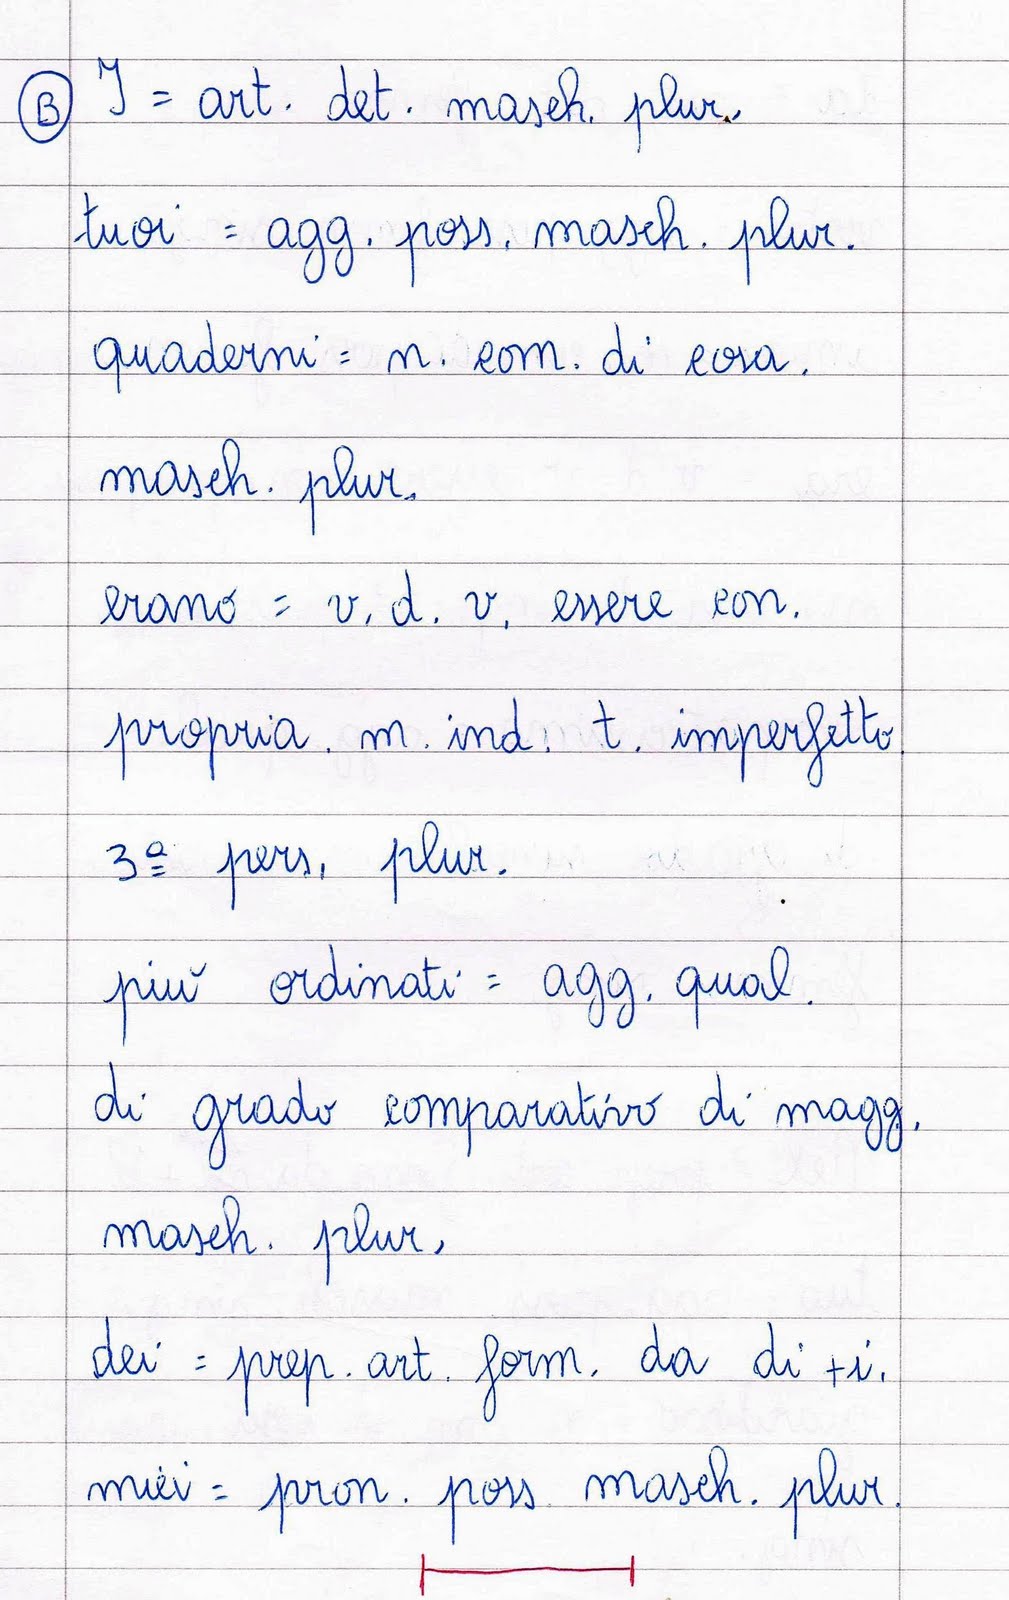 B I = art. det. masch. plur.
tuoi = agg. poss. masch. plur.
quaderni = n. com. di cosa.
masch. plur.
erano = v. d. v. essere con.
propria. m. ind. t. imperfetto
3ª pers. plur.
più ordinati = agg. qual.
di grado comparativo di magg.
masch. plur.
dei = prep. art. form. da di + i.
miei = pron. poss. masch. plur.